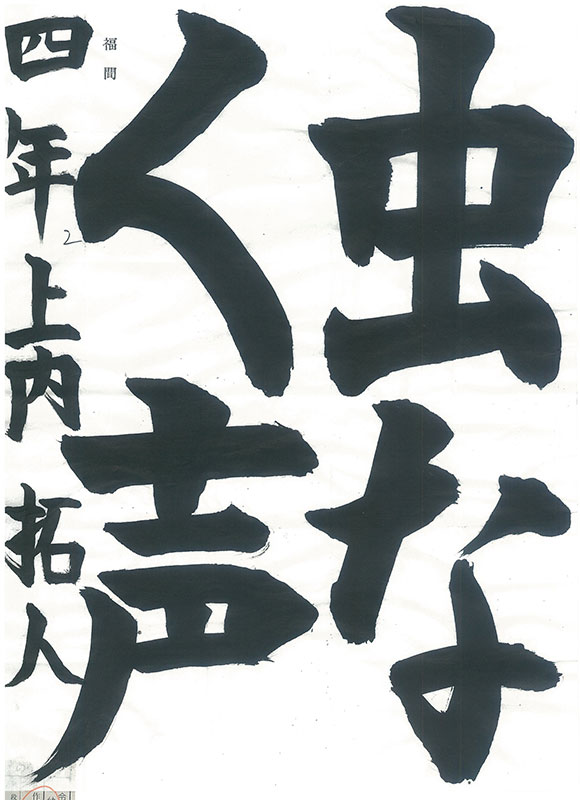 虫な
く声
福間
四年 上内 拓人
2